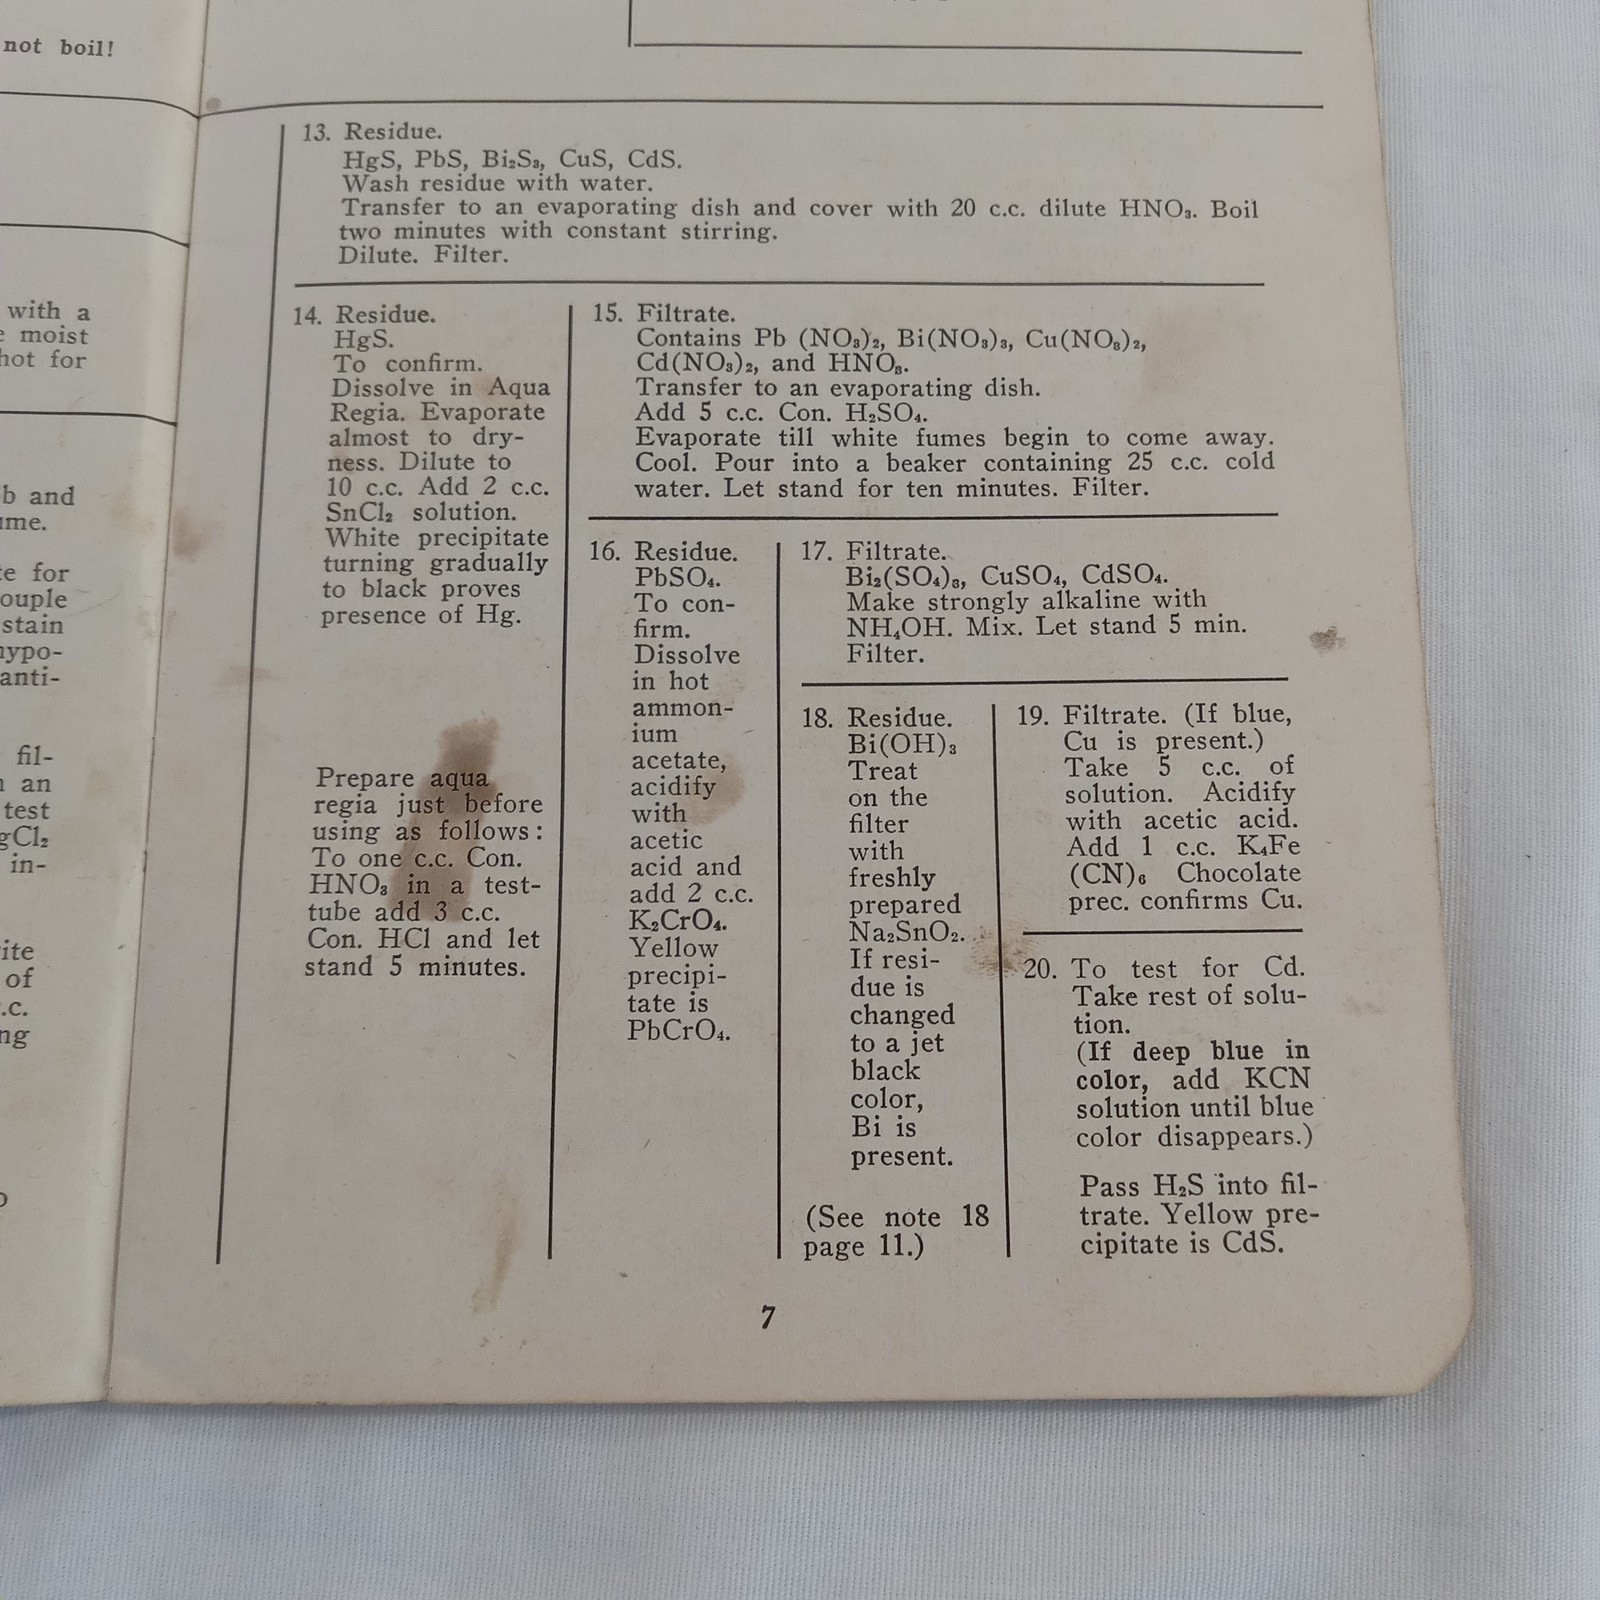 not boil!
with a
moist
hot for
b and
me.
e for
ouple
stain
hypo-
anti-
fil-
an
test
gCl₂
in-
ite
of
.c.
ng
13. Residue.
HgS, PbS, Bi₂S₃, CuS, CdS.
Wash residue with water.
Transfer to an evaporating dish and cover with 20 c.c. dilute HNO₃. Boil
two minutes with constant stirring.
Dilute. Filter.
14. Residue.
HgS.
To confirm.
Dissolve in Aqua
Regia. Evaporate
almost to dry-
ness. Dilute to
10 c.c. Add 2 c.c.
SnCl₂ solution.
White precipitate
turning gradually
to black proves
presence of Hg.
Prepare aqua
regia just before
using as follows:
To one c.c. Con.
HNO₃ in a test-
tube add 3 c.c.
Con. HCl and let
stand 5 minutes.
15. Filtrate.
Contains Pb (NO₃)₂, Bi(NO₃)₃, Cu(NO₃)₂,
Cd(NO₃)₂, and HNO₃.
Transfer to an evaporating dish.
Add 5 c.c. Con. H₂SO₄.
Evaporate till white fumes begin to come away.
Cool. Pour into a beaker containing 25 c.c. cold
water. Let stand for ten minutes. Filter.
16. Residue.
PbSO₄.
To con-
firm.
Dissolve
in hot
ammon-
ium
acetate,
acidify
with
acetic
acid and
add 2 c.c.
K₂CrO₄.
Yellow
precipi-
tate is
PbCrO₄.
17. Filtrate.
Bi₂(SO₄)₃, CuSO₄, CdSO₄.
Make strongly alkaline with
NH₄OH. Mix. Let stand 5 min.
Filter.
18. Residue.
Bi(OH)₃
Treat
on the
filter
with
freshly
prepared
Na₂SnO₂.
If resi-
due is
changed
to a jet
black
color,
Bi is
present.
(See note 18
page 11.)
19. Filtrate. (If blue,
Cu is present.)
Take 5 c.c. of
solution. Acidify
with acetic acid.
Add 1 c.c. K₄Fe
(CN)₆ Chocolate
prec. confirms Cu.
20. To test for Cd.
Take rest of solu-
tion.
(If deep blue in
color, add KCN
solution until blue
color disappears.)
Pass H₂S into fil-
trate. Yellow pre-
cipitate is CdS.
7